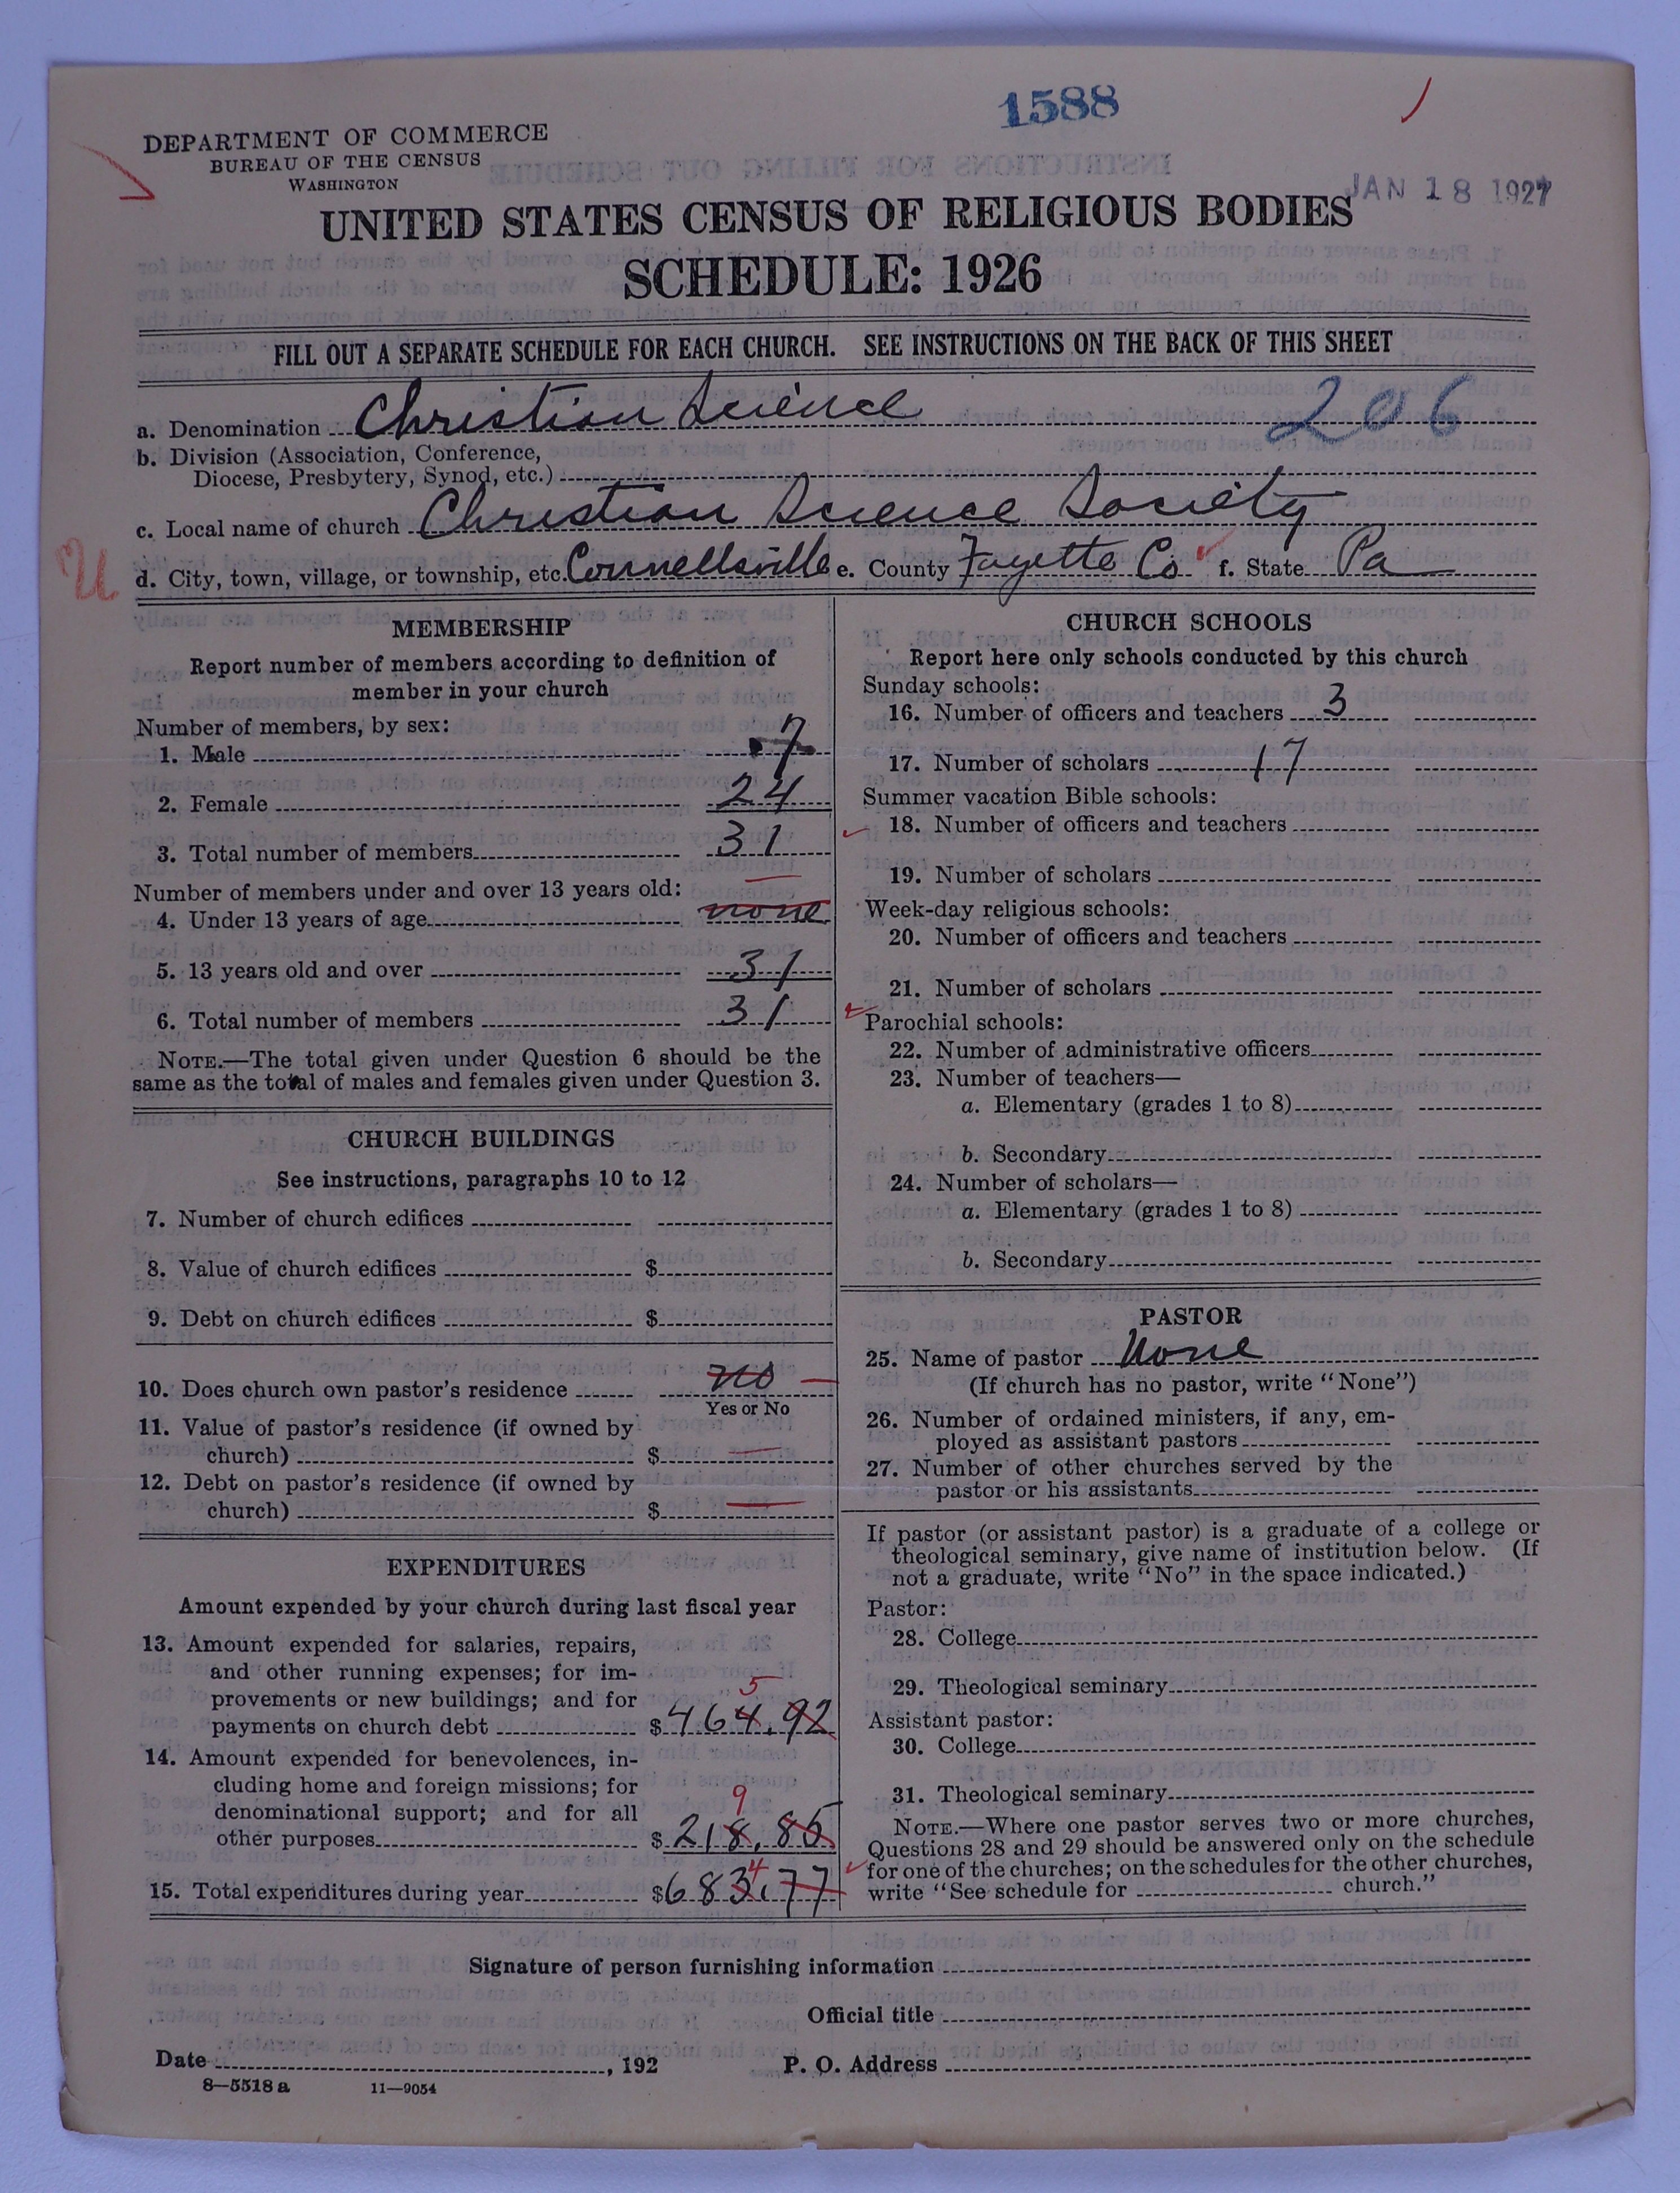 1588
DEPARTMENT OF COMMERCE
BUREAU OF THE CENSUS
WASHINGTON
JAN 18 1927
UNITED STATES CENSUS OF RELIGIOUS BODIES
SCHEDULE: 1926
FILL OUT A SEPARATE SCHEDULE FOR EACH CHURCH. SEE INSTRUCTIONS ON THE BACK OF THIS SHEET
a. Denomination Christian Science 206
b. Division (Association, Conference,
Diocese, Presbytery, Synod, etc.)
c. Local name of church Christian Science Society
U d. City, town, village, or township, etc. Connellsville e. County Fayette Co f. State Pa
MEMBERSHIP
Report number of members according to definition of
member in your church
Number of members, by sex:
1. Male 7
2. Female 24
3. Total number of members 31
Number of members under and over 13 years old:
4. Under 13 years of age none
5. 13 years old and over 31
6. Total number of members 31
NOTE.—The total given under Question 6 should be the
same as the total of males and females given under Question 3.
CHURCH BUILDINGS
See instructions, paragraphs 10 to 12
7. Number of church edifices
8. Value of church edifices $
9. Debt on church edifices $
10. Does church own pastor's residence no
Yes or No
11. Value of pastor's residence (if owned by
church) $
12. Debt on pastor's residence (if owned by
church) $
EXPENDITURES
Amount expended by your church during last fiscal year
13. Amount expended for salaries, repairs,
and other running expenses; for im-
provements or new buildings; and for
5
payments on church debt $ 464.92
14. Amount expended for benevolences, in-
cluding home and foreign missions; for
9
denominational support; and for all
other purposes $ 218.85
4
15. Total expenditures during year $ 683.77
CHURCH SCHOOLS
Report here only schools conducted by this church
Sunday schools:
16. Number of officers and teachers 3
17. Number of scholars 17
Summer vacation Bible schools:
18. Number of officers and teachers
19. Number of scholars
Week-day religious schools:
20. Number of officers and teachers
21. Number of scholars
Parochial schools:
22. Number of administrative officers
23. Number of teachers—
a. Elementary (grades 1 to 8)
b. Secondary
24. Number of scholars—
a. Elementary (grades 1 to 8)
b. Secondary
PASTOR
25. Name of pastor None
(If church has no pastor, write "None")
26. Number of ordained ministers, if any, em-
ployed as assistant pastors
27. Number of other churches served by the
pastor or his assistants
If pastor (or assistant pastor) is a graduate of a college or
theological seminary, give name of institution below. (If
not a graduate, write "No" in the space indicated.)
Pastor:
28. College
29. Theological seminary
Assistant pastor:
30. College
31. Theological seminary
NOTE.—Where one pastor serves two or more churches,
Questions 28 and 29 should be answered only on the schedule
for one of the churches; on the schedules for the other churches,
write "See schedule for church."
Signature of person furnishing information
Official title
Date , 192 P. O. Address
8—5518 a 11—9054